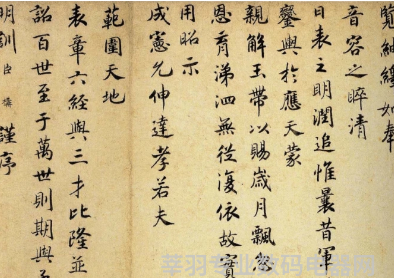 覽紬繹如奉
音容之睟清
日表之明潤追惟曩昔軍
鑾輿於應天蒙
親解玉帶以賜歲月飄
恩育涕泗無從復依故實
用昭示
成憲允伸達孝若夫
範圍天地
表章六經與三才比隆並
詔百世至于萬世則期與
明訓臣構謹序
莘羽专业数码电脑城